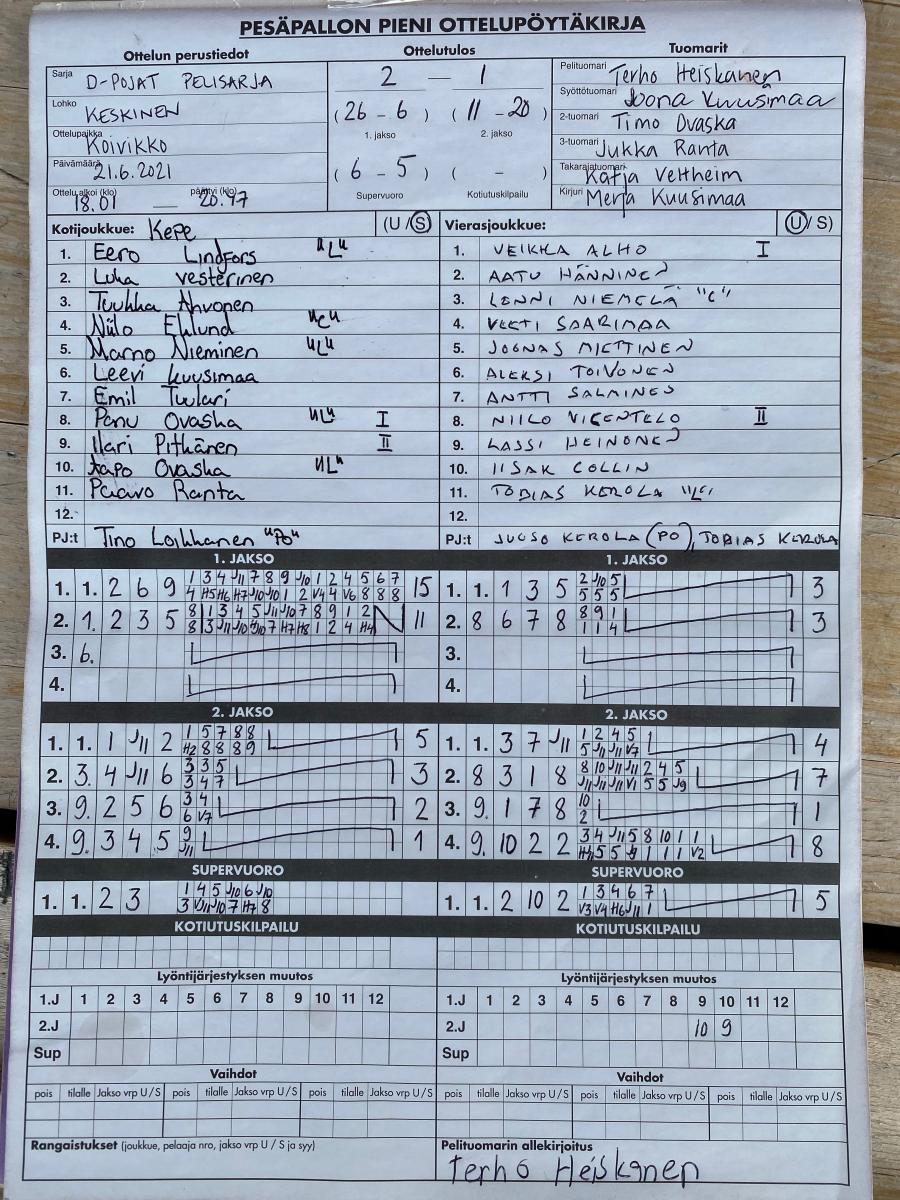 PESÄPALLON PIENI OTTELUPÖYTÄKIRJA
Ottelun perustiedot Ottelutulos Tuomarit
Sarja D-POJAT PELISARJA
Lohko KESKINEN
Ottelupaikka Koivikko
Päivämäärä 21.6.2021
Ottelu alkoi (klo) 18.01 — päättyi (klo) 20.47
2 — 1
(26 - 6) (11 - 20)
1. jakso 2. jakso
(6 - 5) ( - )
Supervuoro Kotiutuskilpailu
Pelituomari Terho Heiskanen
Syöttötuomari Joona Kuusimaa
2-tuomari Timo Ovaska
3-tuomari Jukka Ranta
Takarajatuomari Katja Veltheim
Kirjuri Merja Kuusimaa
Kotijoukkue: KePe (U / S)
1. Eero Lindfors "L"
2. Luka Vesterinen
3. Tuukka Ahvonen
4. Niilo Eklund "C"
5. Marno Nieminen "L"
6. Leevi Kuusimaa
7. Emil Tuulari
8. Panu Ovaska "L" I
9. Ilari Pitkänen II
10. Aapo Ovaska "L"
11. Paavo Ranta
12.
PJ:t Tino Loikkanen "PO"
Vierasjoukkue: (U / S)
1. VEIKKA ALHO I
2. AATU HÄNNINEN
3. LENNI NIEMELÄ "C"
4. VEETI SAARIMAA
5. JOONAS MIETTINEN
6. ALEKSI TOIVONEN
7. ANTTI SALMINEN
8. NIILO VICENTELO II
9. LASSI HEINONEN
10. IISAK COLLIN
11. TOBIAS KEROLA "L"
12.
PJ:t JUUSO KEROLA (PO), TOBIAS KEROLA
1. JAKSO
1. 1. 2 6 9 1 3 4 J11 7 8 9 J10 1 2 4 5 6 7 15
4 H5 H6 H7 J10 J10 1 2 V4 4 V6 8 8 8
2. 1. 2 3 5 8 1 3 4 5 J11 J10 7 8 9 1 2 11
8 3 J11 J10 J10 7 H7 H8 1 2 4 H4
3. 6.
4.
1. JAKSO
1. 1. 1 3 5 2 J10 5 3
5 5 5
2. 8 6 7 8 8 9 1 3
1 1 4
3.
4.
2. JAKSO
1. 1. 1 J11 2 1 5 7 8 8 5
H2 8 8 8 9
2. 3. 4 J11 6 3 3 5 3
3 4 7
3. 9. 2 5 6 3 4 2
6 V7
4. 9. 3 4 5 9 1
J11
2. JAKSO
1. 1. 3 7 J11 1 2 4 5 4
5 J11 J11 V7
2. 8 3 1 8 8 10 J11 J11 2 4 5 7
J11 J11 J11 V1 5 5 J9
3. 9. 1 7 8 10 1
2
4. 9. 10 2 2 3 4 J11 5 8 10 1 1 8
5 5 J9 1 1 1 V2
SUPERVUORO
1. 1. 2 3 1 4 5 J10 6 J10
3 V J11 J10 7 H7 8
SUPERVUORO
1. 1. 2 10 2 1 3 4 6 7 5
V3 V4 H6 J11 1
KOTIUTUSKILPAILU
KOTIUTUSKILPAILU
Lyöntijärjestyksen muutos
1.J 1 2 3 4 5 6 7 8 9 10 11 12
2.J
Sup
Lyöntijärjestyksen muutos
1.J 1 2 3 4 5 6 7 8 9 10 11 12
2.J 10 9
Sup
Vaihdot
pois tilalle Jakso vrp U / S pois tilalle Jakso vrp U / S pois tilalle Jakso vrp U / S
Vaihdot
pois tilalle Jakso vrp U / S pois tilalle Jakso vrp U / S pois tilalle Jakso vrp U / S
Rangaistukset (joukkue, pelaaja nro, jakso vrp U / S ja syy)
Pelituomarin allekirjoitus
Terho Heiskanen